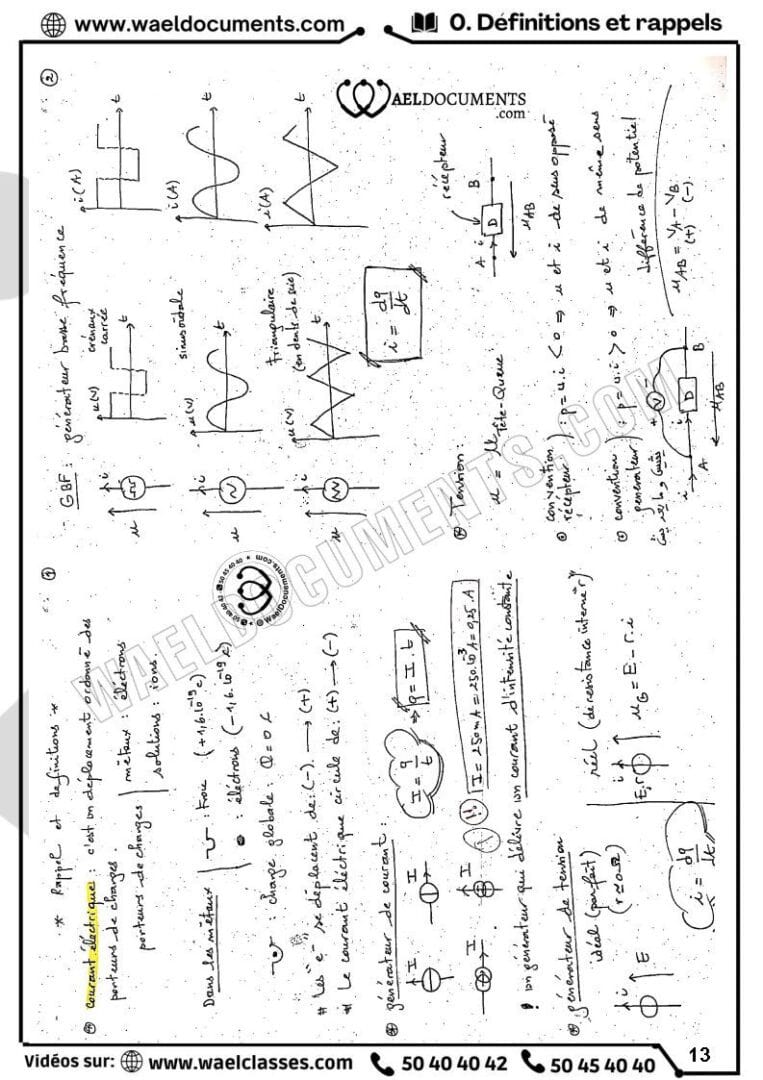 www.waeldocuments.com
0. Définitions et rappels
WAELDOCUMENTS
.com
①
* Rappel et définitions *
courant électrique : c'est un déplacement ordonné des
porteurs de charges.
porteurs de charges
métaux : électrons
solutions : ions.
Dans les métaux
: trou (+1,6.10⁻¹⁹ c)
: électrons (-1,6.10⁻¹⁹ c)
: charge globale : Q = 0 c
* Les "e⁻" se déplacent de : (-) → (+)
* Le courant électrique circule de : (+) → (-)
générateur de courant :
I
I
I
I
I = q/t ⇒ q = I t
!! I = 250 mA = 250.10⁻³ A = 0,25 A
! un générateur qui délivre un courant d'intensité constante
générateur de tension
idéal (parfait)
(r = 0 Ω)
réel (de résistance interne r)
i
E
i
E, r
u_G = E - r.i
i = dq/dt
②
GBF : générateur basse fréquence
u
i
u(V)
créneaux
carrée
t
i(A)
t
u
i
u(V)
sinusoïdale
t
i(A)
t
u
i
u(V)
triangulaire
(en dents de scie)
t
i(A)
t
i = dq/dt
Tension :
u = u Tête-Queue
récepteur
A
i
D
B
u_AB
convention
récepteur
) : p = u.i < 0 ⇒ u et i de sens opposé
convention
générateur
) : p = u.i > 0 ⇒ u et i de même sens
différence de potentiel
u_AB = V_A - V_B
(+) (-)
i
A
+
V
-
D
B
u_AB
WAELDOCUMENTS.COM
Vidéos sur:
www.waelclasses.com
50 40 40 42
50 45 40 40
13